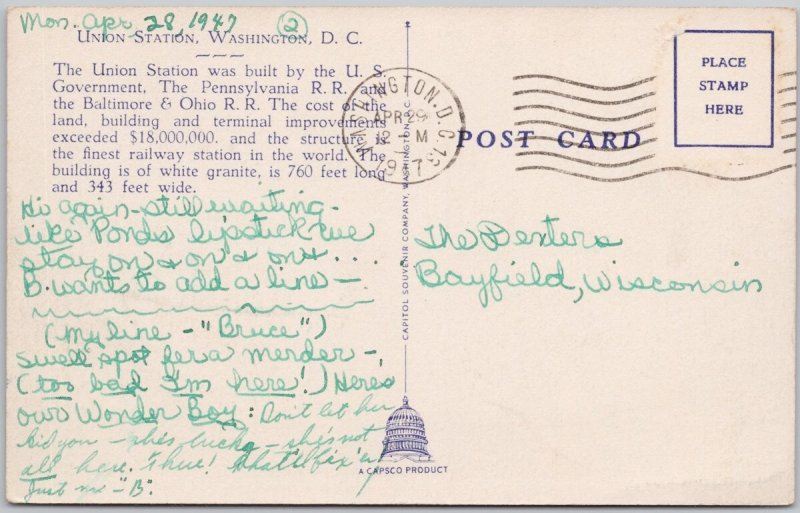 Mon. Apr 28, 1947 (2)
UNION STATION, WASHINGTON, D. C.
The Union Station was built by the U. S.
Government, The Pennsylvania R. R. and
the Baltimore & Ohio R. R. The cost of the
land, building and terminal improvements
exceeded $18,000,000. and the structure is
the finest railway station in the world. The
building is of white granite, is 760 feet long
and 343 feet wide.
Hi again - still waiting -
like Ponds lipstick we
stay on & on & on & ...
B. wants to add a line -
(My line - "Bruce")
Swell spot fer a merder -
(too bad I'm here!) Here's
our Wonder Boy: Don't let her
kid you - she's lucky - she's not
all here. There! that'll fix 'er
Just me - "B".
WASHINGTON, D.C. 13
APR 29
12 M
1947
CAPITOL SOUVENIR COMPANY, WASHINGTON, D.C.
A CAPSCO PRODUCT
POST CARD
PLACE
STAMP
HERE
The Dexters
Bayfield, Wisconsin